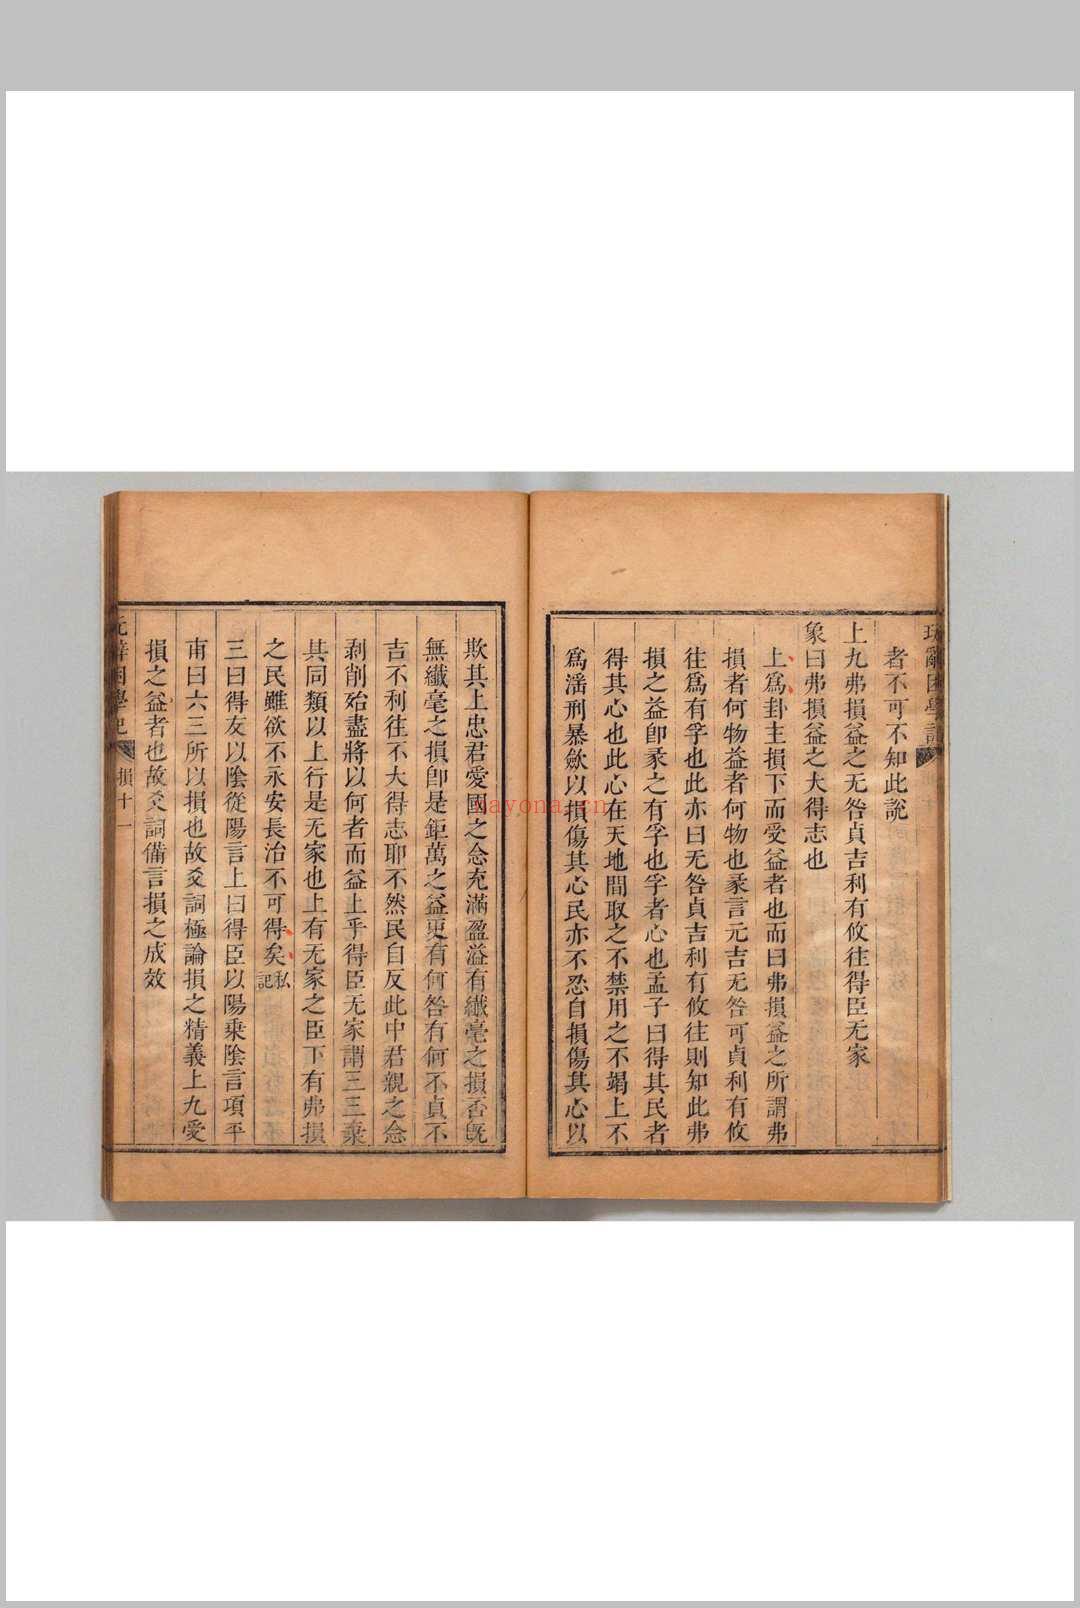 玩辭困學記
者不可不知此說
上九弗損益之无咎貞吉利有攸往得臣无家
象曰弗損益之大得志也
上為卦主損下而受益者也而曰弗損益之所謂弗
損者何物益者何物也彖言元吉无咎可貞利有攸
往為有孚也此亦曰无咎貞吉利有攸往則知此弗
損之益卽彖之有孚也孚者心也孟子曰得其民者
得其心也此心在天地間取之不禁用之不竭上不
為淫刑暴歛以損傷其心民亦不忍自損傷其心以
欺其上忠君愛國之念充滿盈溢有纖毫之損否旣
無纖毫之損卽是鉅萬之益更有何咎有何不貞不
吉不利往不大得志耶不然民自反此中君親之念
剥削殆盡將以何者而益上乎得臣无家謂三三彙
其同類以上行是无家也上有无家之臣下有弗損
之民雖欲不永安長治不可得矣私記
三曰得友以陰從陽言上曰得臣以陽乘陰言項平
甫曰六三所以損也故爻詞極論損之精義上九受
損之益者也故爻詞備言損之成效
玩辭困學記
損十一
nayona.cn